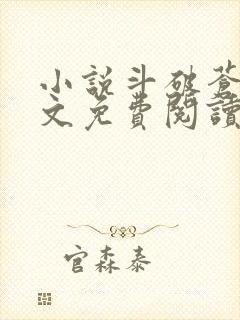 小說斗破蒼
文免費閱讀
官森泰